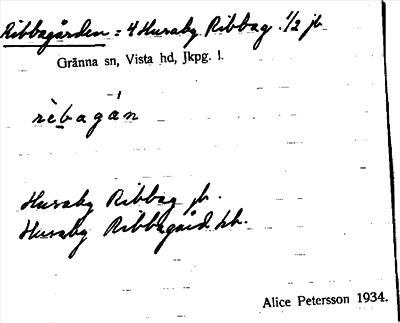 Ribbagården = 4 Huraby Ribbag. 1/2 jb
Gränna sn, Vista hd, Jkpg. l.
rèbagán
Huraby Ribbag jb.
Huraby Ribbagård kb.
Alice Petersson 1934.